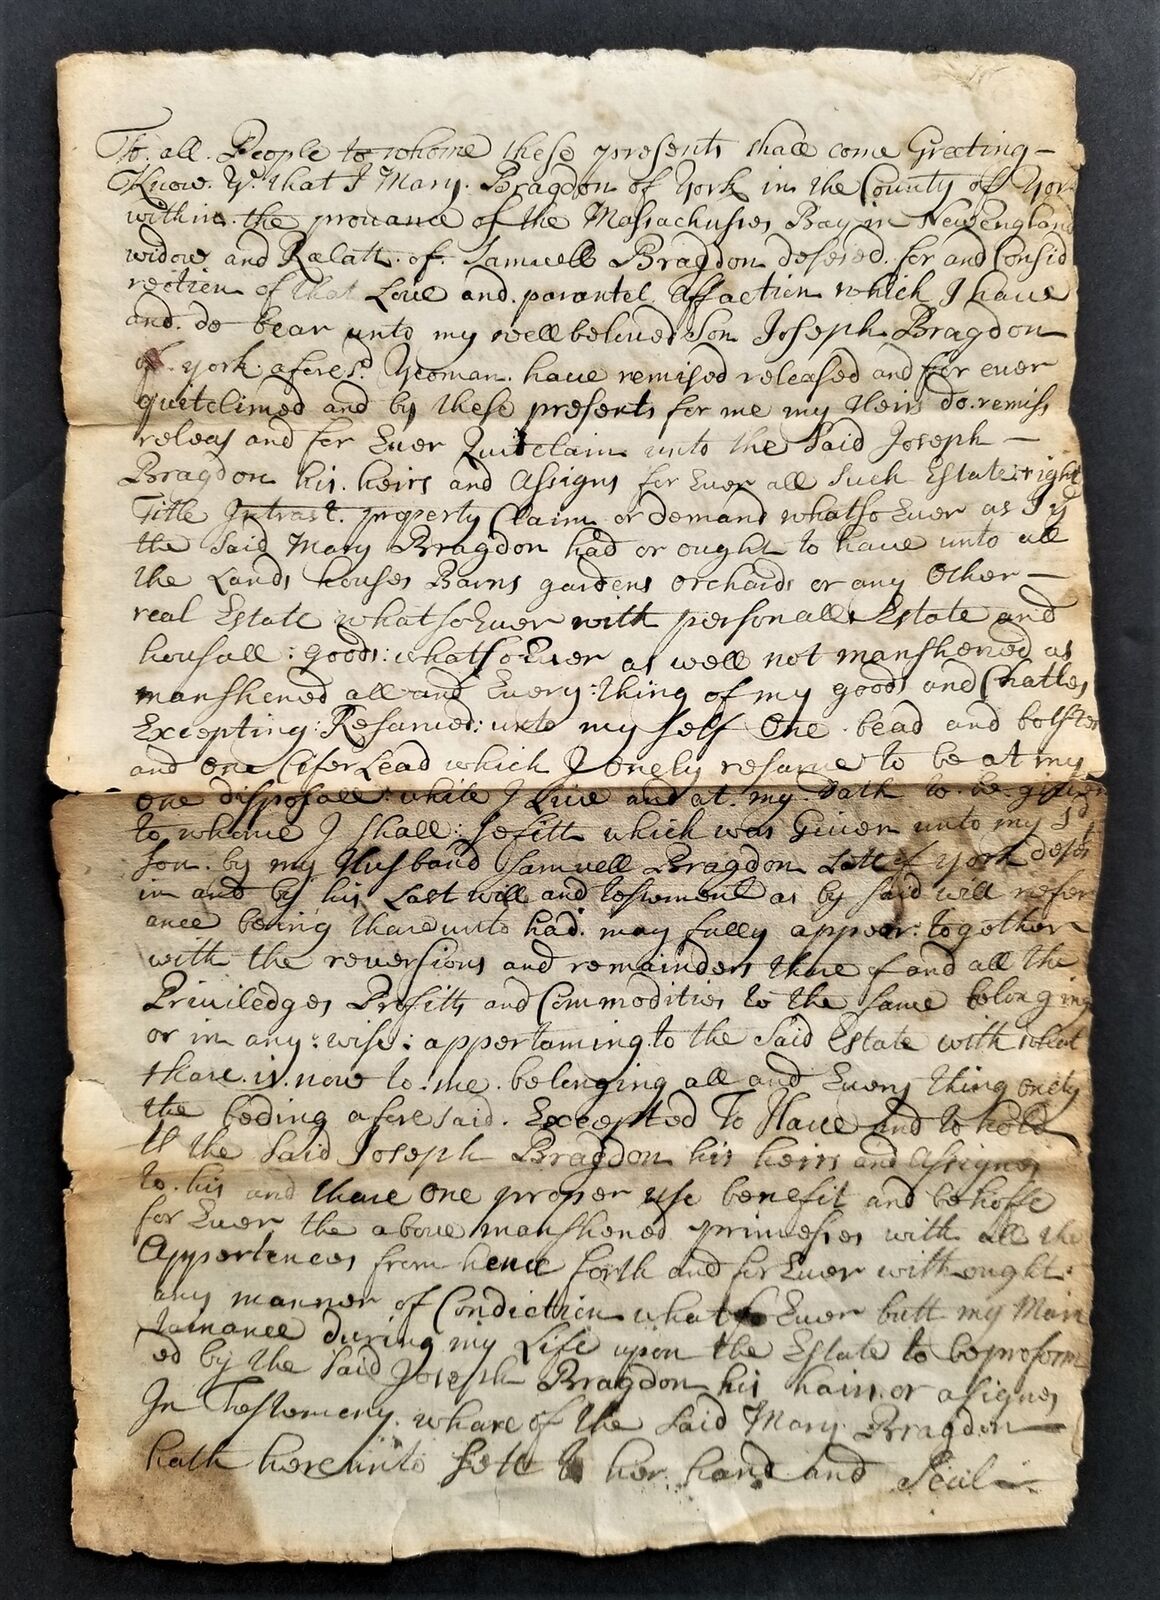 To all People to whome these presents shall come Greeting —
Know Ye that I Mary Bragdon of York in the County of York
within the prouance of the Massachusies Bay in New England
widow and Ralatt of Samuell Bragdon desesed for and Consid
rection of that Loue and parantel affaction which I haue
and do bear unto my well beloued Son Joseph Bragdon
of york afores.d Yeoman haue remised released and for euer
quitclimed and by these presents for me my Heirs do remiss
releas and for Euer Quitclaim unto the Said Joseph —
Bragdon his heirs and Assigns for Euer all Such Estate right
Title Intrast property Claim or demand whatso Euer as I ye
the Said Mary Bragdon had or ought to haue unto all
the Lands houses Barns gardens orchards or any Other —
real Estate whatsoEuer with personall Estate and
housall : goods : whatsoEuer as well not manshened as
manshened all and Euery : thing of my goods and Chatles
Excepting : Resarued : unto my self One bead and bolster
and one Couerlead which I onely resarue to be at my
one disposall : while I Liue and at my Dath to be giuen
to whome I shall : which was Giuen unto my Sd
Son by my Husband Samuell Bragdon Late of york
in and by his Last will and testement as by said will refer
ance being thareunto had may fully appear : together
with the reuersions and remainders thare of and all the
Priuiledges Profitts and Commodities to the same belonging
or in any : wise : appertaining to the Said Estate with what
thare is now to me belonging all and Euery thing onely
the beding afore said Excepted To Haue and to hold
the Said Joseph Bragdon his heirs and Assignes
to his and thare one proper use benefit and behofe
for Euer the aboue manshened primesses with all the
Appertences from hence forth and for Euer with ought
any manner of Condicttion what so Euer butt my Main
tainance during my Life upon the Estate to be preform
ed by the Said Joseph Bragdon his hairs or asignes
In Testemeny whare of the Said Mary Bragdon —
hath hereunto Sett to her hand and Seal —